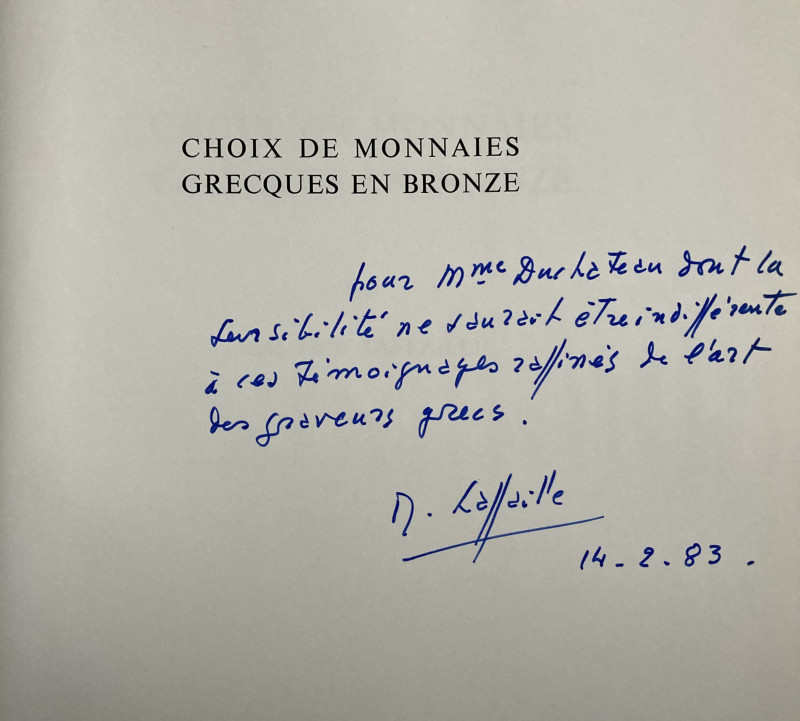 CHOIX DE MONNAIES
GRECQUES EN BRONZE
pour Mme Duchateau dont la
sensibilité ne saurait être indifférente
à ces témoignages raffinés de l'art
des graveurs grecs.
M. Laffaille
14-2-83.